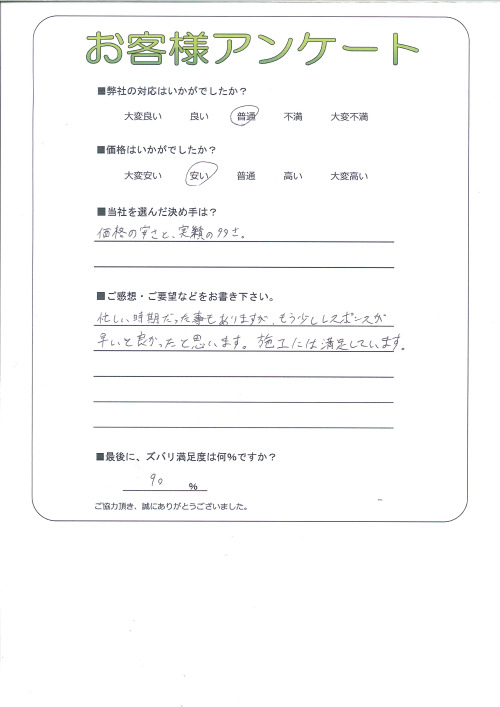 お客様アンケート
■弊社の対応はいかがでしたか？
大変良い 良い 普通 不満 大変不満
■価格はいかがでしたか？
大変安い 安い 普通 高い 大変高い
■当社を選んだ決め手は？
価格の安さと、実績の多さ。
■ご感想・ご要望などをお書き下さい。
忙しい時期だった事もありますが、もう少しレスポンスが
早いと良かったと思います。施工には満足しています。
■最後に、ズバリ満足度は何％ですか？
90 %
ご協力頂き、誠にありがとうございました。